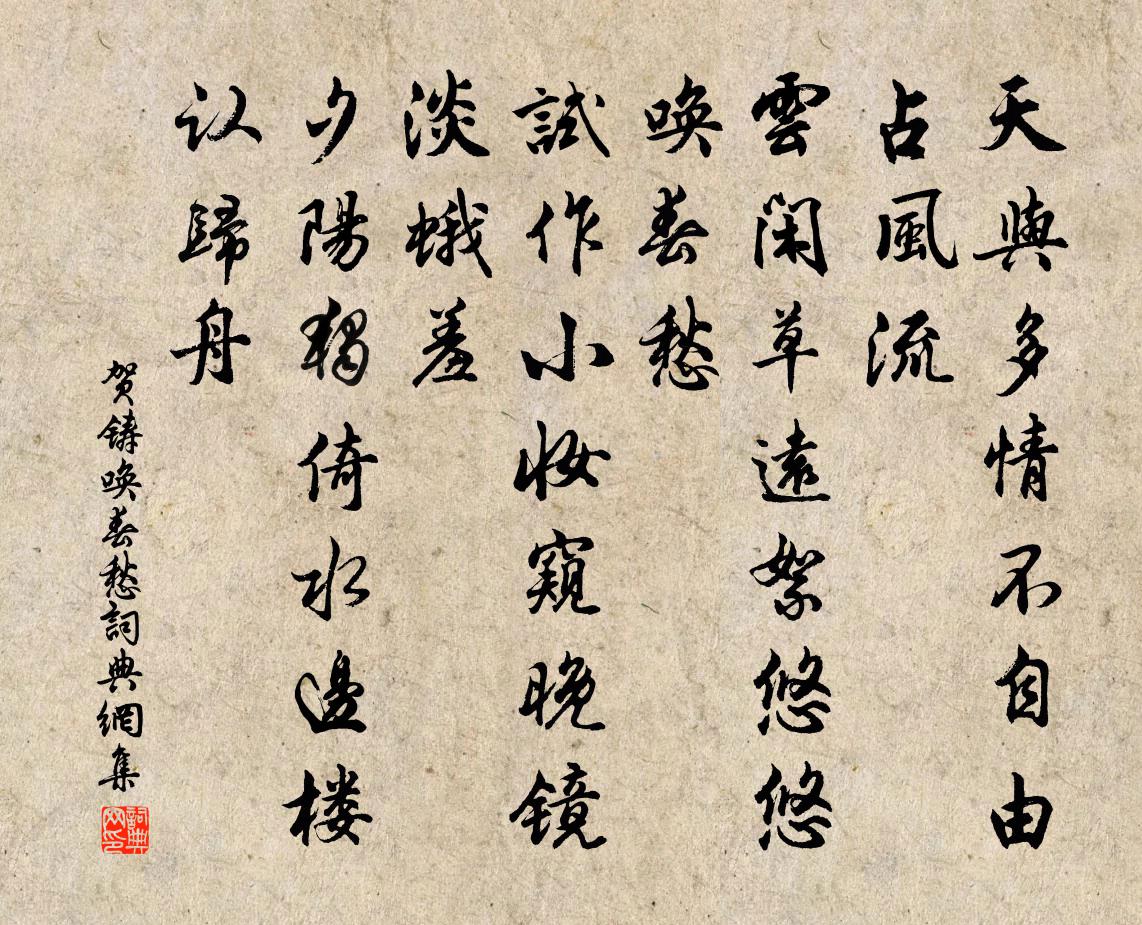 天與多情不自由
占風流
雲閑草遠絮悠悠
喚春愁
試作小妝窺晚鏡
淡蛾羞
夕陽獨倚水邊楼
认歸舟
贺鑄喚春愁詞典網集
詞典网印